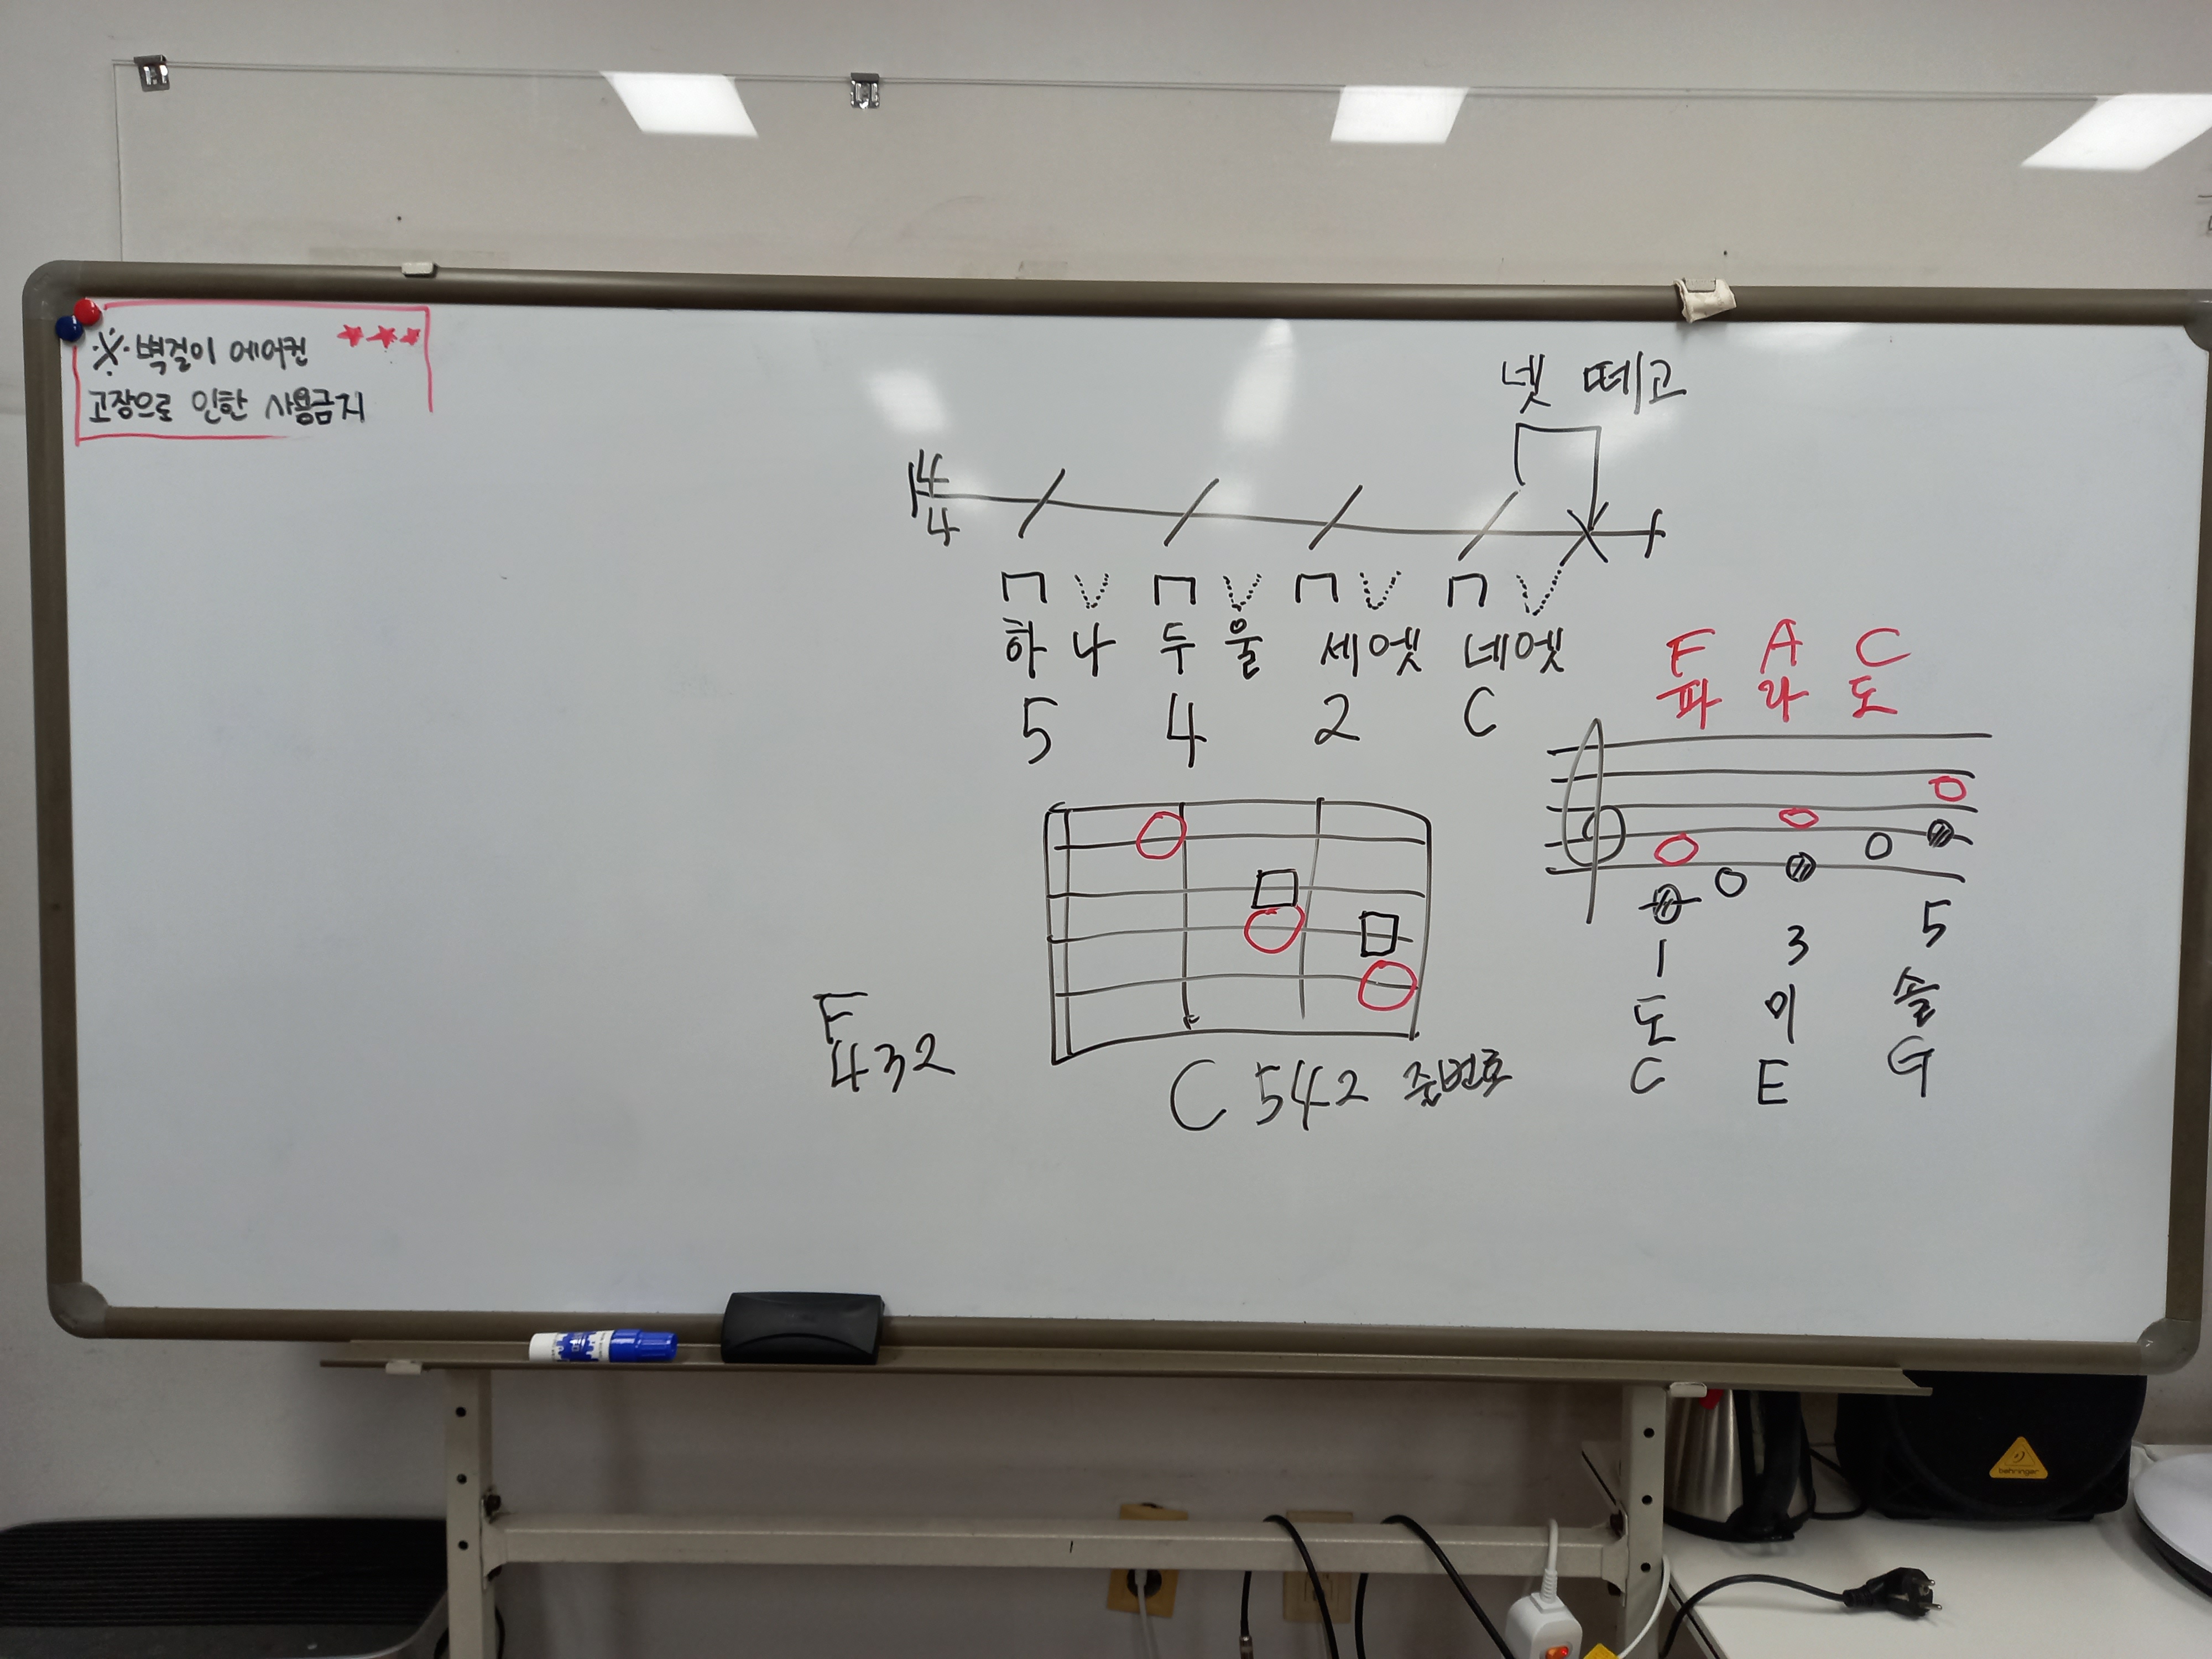 ※ 벽걸이 에어컨
고장으로 인한 사용금지
넷 떼고
4
4
하나 두울 세엣 네엣
5 4 2 C
F A C
파 라 도
1 3 5
도 미 솔
C E G
F
432
C 542 줄번호
behringer